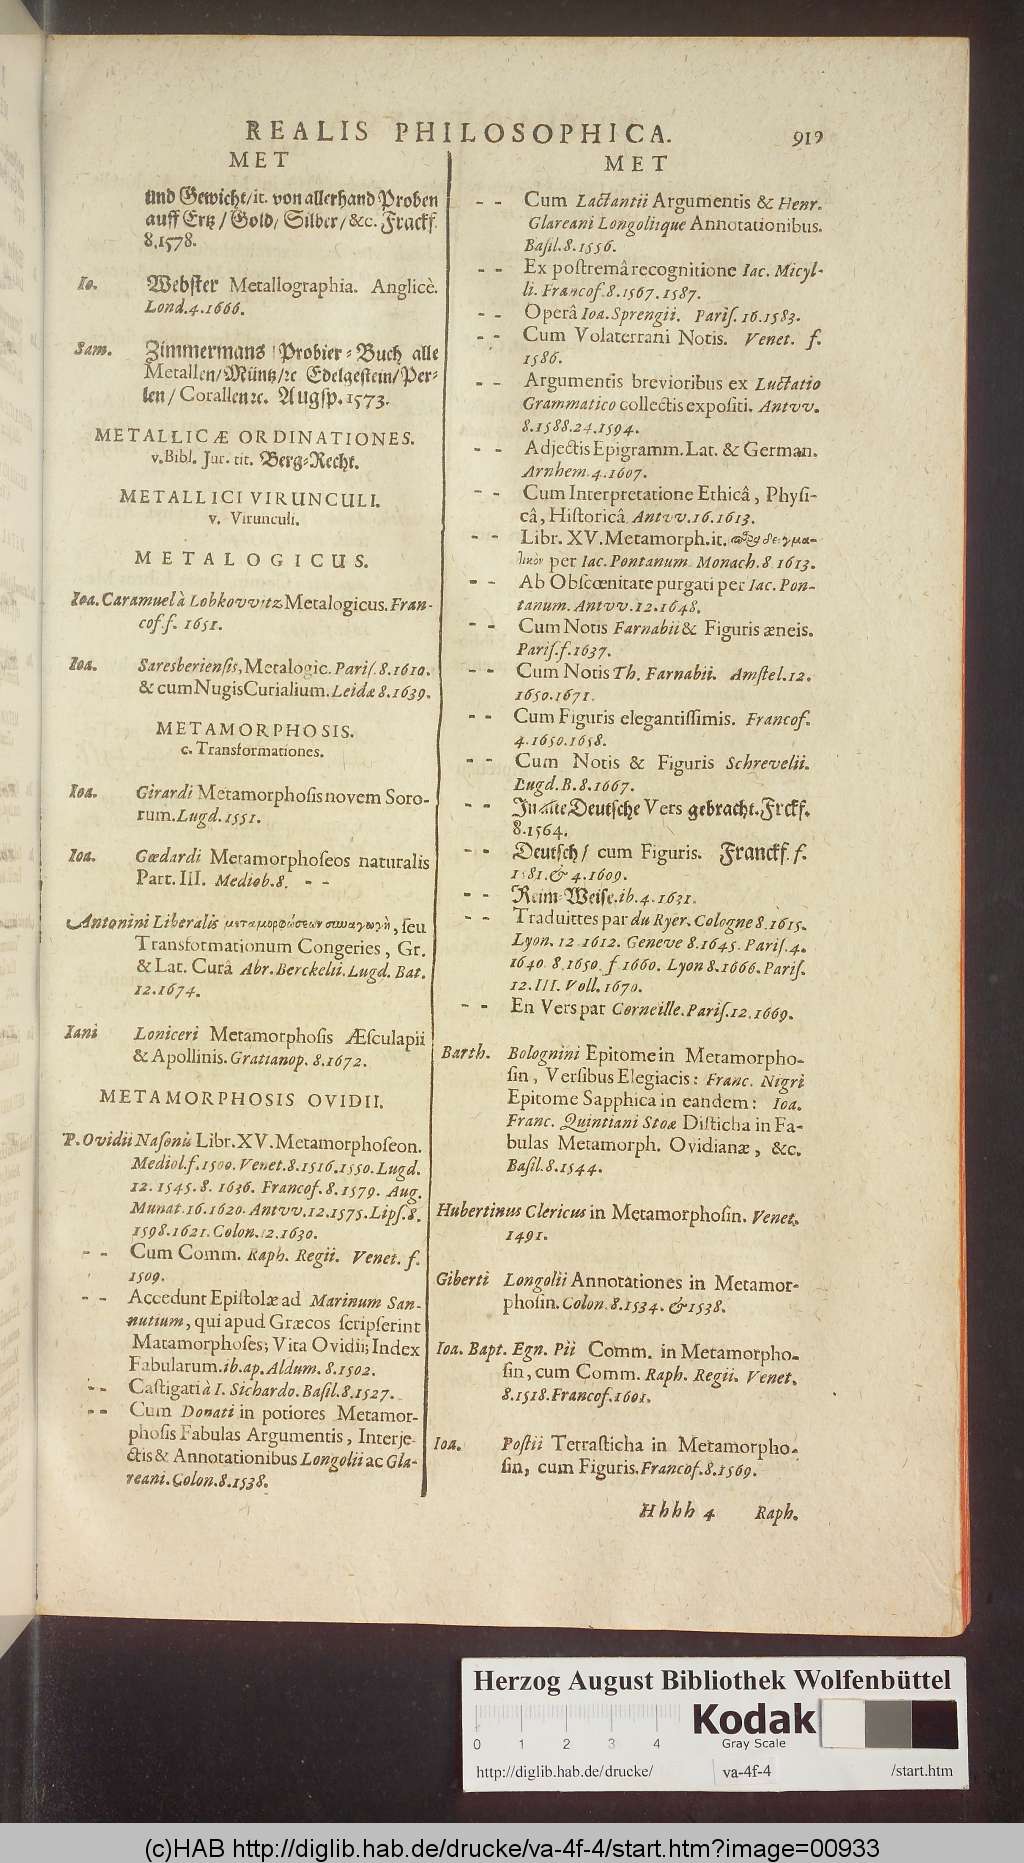 REALIS PHILOSOPHICA.
919
MET
und Gewicht/it. von allerhand Proben
auff Ertz/Gold/Silber/&c. Franckf.
8.1578.
Io. Webster Metallographia. Anglicè.
Lond.4.1666.
Sam. Zimmermans Probier-Buch alle
Metallen/Müntz/ꝛc Edelgestein/Per-
len/Corallenꝛc. Augsp.1573.
METALLICÆ ORDINATIONES.
v.Bibl. Jur. tit. Berg-Recht.
METALLICI VIRUNCULI.
v. Virunculi.
METALOGICUS.
Ioa. Caramuel à Lobkovvitz Metalogicus. Fran-
cof.f. 1651.
Ioa. Saresberiensis, Metalogic. Paris.8.1610.
& cum Nugis Curialium. Leidæ 8.1639.
METAMORPHOSIS.
c. Transformationes.
Ioa. Girardi Metamorphosis novem Soro-
rum. Lugd.1551.
Ioa. Gœdardi Metamorphoseos naturalis
Part. III. Mediob.8. - -
Antonini Liberalis μεταμορφώσεων συναγωγὴ, seu
Transformationum Congeries, Gr.
& Lat. Curâ Abr. Berckelii. Lugd. Bat.
12.1674.
Iani Loniceri Metamorphosis Æsculapii
& Apollinis. Gratianop. 8.1672.
METAMORPHOSIS OVIDII.
P. Ovidii Nasonis Libr. XV. Metamorphoseon.
Mediol.f.1500. Venet.8.1516.1550. Lugd.
12.1545.8. 1636. Francof.8.1579. Aug.
Munat.16.1620. Antvv.12.1575. Lips.8.
1598.1621. Colon.12.1630.
- - Cum Comm. Raph. Regii. Venet. f.
1509.
- - Accedunt Epistolæ ad Marinum San-
nutium, qui apud Græcos scripserint
Matamorphoses; Vita Ovidii; Index
Fabularum. ib. ap. Aldum. 8.1502.
- - Castigati à I. Sichardo. Basil.8.1527.
- - Cum Donati in potiores Metamor-
phosis Fabulas Argumentis, Interje-
ctis & Annotationibus Longolii ac Gla-
reani. Colon.8.1538.
MET
- - Cum Lactantii Argumentis & Henr.
Glareani Longoliique Annotationibus.
Basil.8.1556.
- - Ex postremâ recognitione Iac. Micyl-
li. Francof.8.1567.1587.
- - Operâ Ioa. Sprengii. Paris.16.1583.
- - Cum Volaterrani Notis. Venet. f.
1586.
- - Argumentis brevioribus ex Luctatio
Grammatico collectis expositi. Antvv.
8.1588.24.1594.
- - Adjectis Epigramm. Lat. & German.
Arnhem.4.1607.
- - Cum Interpretatione Ethicâ, Physi-
câ, Historicâ Antvv.16.1613.
- - Libr. XV. Metamorph. it.
per Iac. Pontanum. Monach.8.1613.
- - Ab Obscœnitate purgati per Iac. Pon-
tanum. Antvv.12.1648.
- - Cum Notis Farnabii & Figuris æneis.
Paris.f.1637.
- - Cum Notis Th. Farnabii. Amstel.12.
1650.1671.
- - Cum Figuris elegantissimis. Francof.
4.1650.1658.
- - Cum Notis & Figuris Schrevelii.
Lugd.B.8.1667.
- - In alte Deutsche Vers gebracht. Frckf.
8.1564.
- - Deutsch/ cum Figuris. Franckf. f.
1581.& 4.1609.
- - Reim-Weise. ib.4.1631.
- - Traduittes par du Ryer. Cologne 8.1615.
Lyon.12.1612. Geneve 8.1645. Paris.4.
1640.8.1650.f 1660. Lyon 8.1666. Paris.
12.III. Voll.1670.
- - En Vers par Corneille. Paris.12.1669.
Barth. Bolognini Epitome in Metamorpho-
sin, Versibus Elegiacis: Franc. Nigri
Epitome Sapphica in eandem: Ioa.
Franc. Quintiani Stoæ Disticha in Fa-
bulas Metamorph. Ovidianæ, &c.
Basil.8.1544.
Hubertinus Clericus in Metamorphosin. Venet.
1491.
Giberti Longolii Annotationes in Metamor-
phosin. Colon.8.1534. & 1538.
Ioa. Bapt. Egn. Pii Comm. in Metamorpho-
sin, cum Comm. Raph. Regii. Venet.
8.1518. Francof.1601.
Ioa. Postii Tetrasticha in Metamorpho-
sin, cum Figuris. Francof.8.1569.
Hhhh 4 Raph.
Herzog August Bibliothek Wolfenbüttel
0 1 2 3 4
Kodak
Gray Scale
http://diglib.hab.de/drucke/ va-4f-4 /start.htm
(c)HAB http://diglib.hab.de/drucke/va-4f-4/start.htm?image=00933